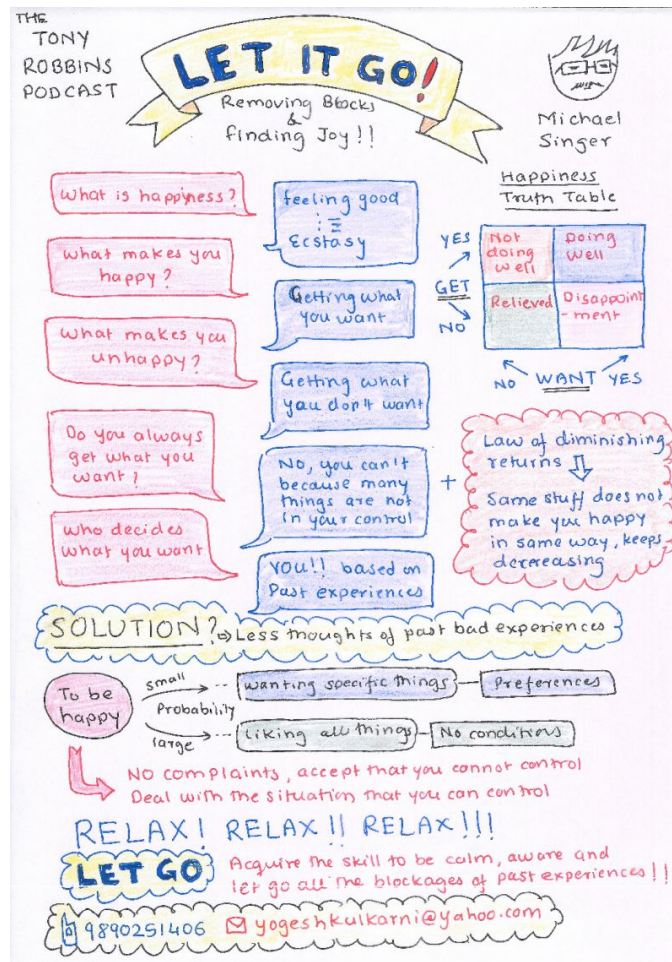 THE
TONY
ROBBINS
PODCAST
LET IT GO!
Removing Blocks
&
finding Joy!!
Michael
Singer
What is happiness?
feeling good
Ecstasy
What makes you
happy?
Getting what
you want
What makes you
unhappy?
Getting what
you don't want
Do you always
get what you
want?
No, you can't
because many
things are not
in your control
who decides
what you want
YOU!! based on
Past experiences
Happiness
Truth Table
YES
GET
NO
Not
doing
well
Doing
well
Relieved
Disappoint
-ment
NO WANT YES
+
Law of diminishing
returns
Same stuff does not
make you happy
in same way, keeps
decreasing
SOLUTION? ⇒ Less thoughts of past bad experiences
To be
happy
small
Probability
large
wanting specific things
Preferences
liking all things
No conditions
No complaints, accept that you cannot control
Deal with the situation that you can control
RELAX! RELAX!! RELAX!!!
LET GO
Acquire the skill to be calm, aware and
let go all the blockages of past experiences!!
9890251406 yogeshkulkarni@yahoo.com